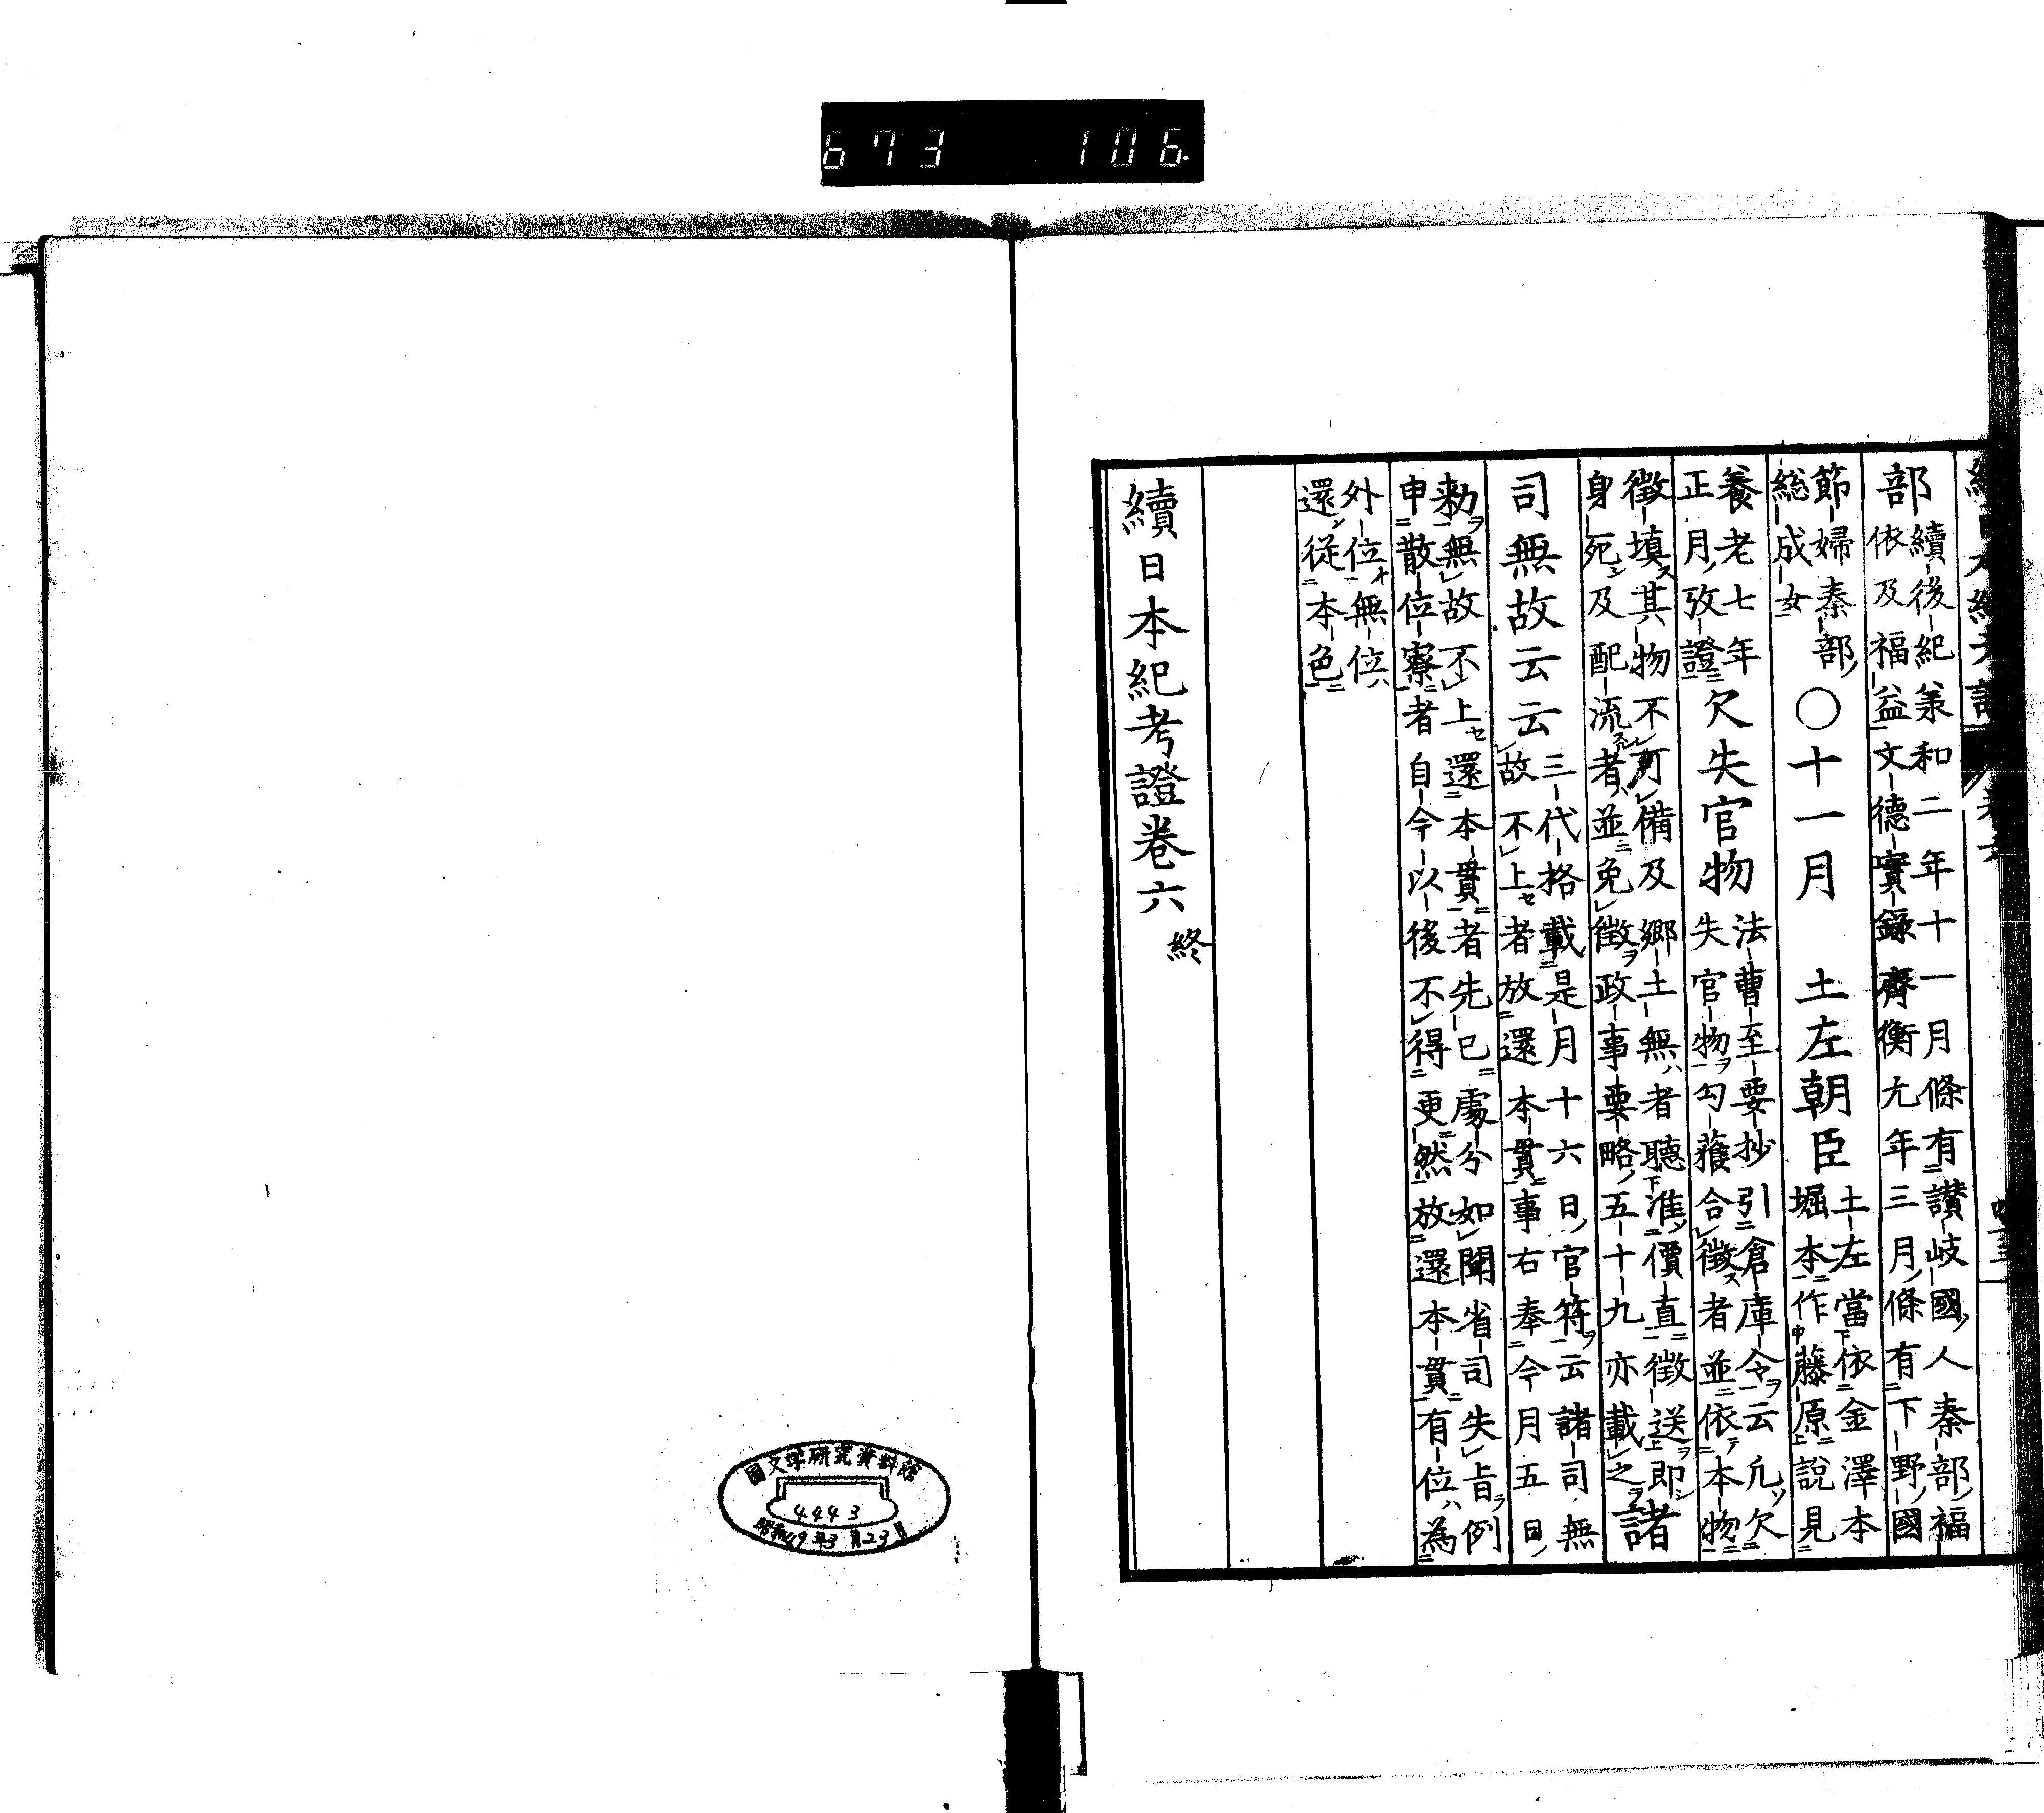 673 106.
部 續後紀羕和二年十一月條有讃岐國人秦部福
依及福益文德實錄齊衡九年三月條有下野國
節婦秦部
総成女 ○十一月 土左朝臣 土左當依金澤本
堀本作藤原説見
養老七年
正月攷證 欠失官物 法曹至要抄引倉庫令云凢欠
失官物勾獲合徵者並依本物
徵填其物不可備及鄉土無者聽准價直徵送即
身死及配流者並免徵政事要略五十九亦載之 諸
司無故云云 三代格載是月十六日官符云諸司無
故不上者放還本貫事右奉今月五日
勅無故不上還本貫者先已處分如聞省司失旨例
申散位寮者自今以後不得更然放還本貫有位為
外位無位
還從本色
續日本紀考證卷六 終
國文学研究資料館
4443
昭和49年3月23日